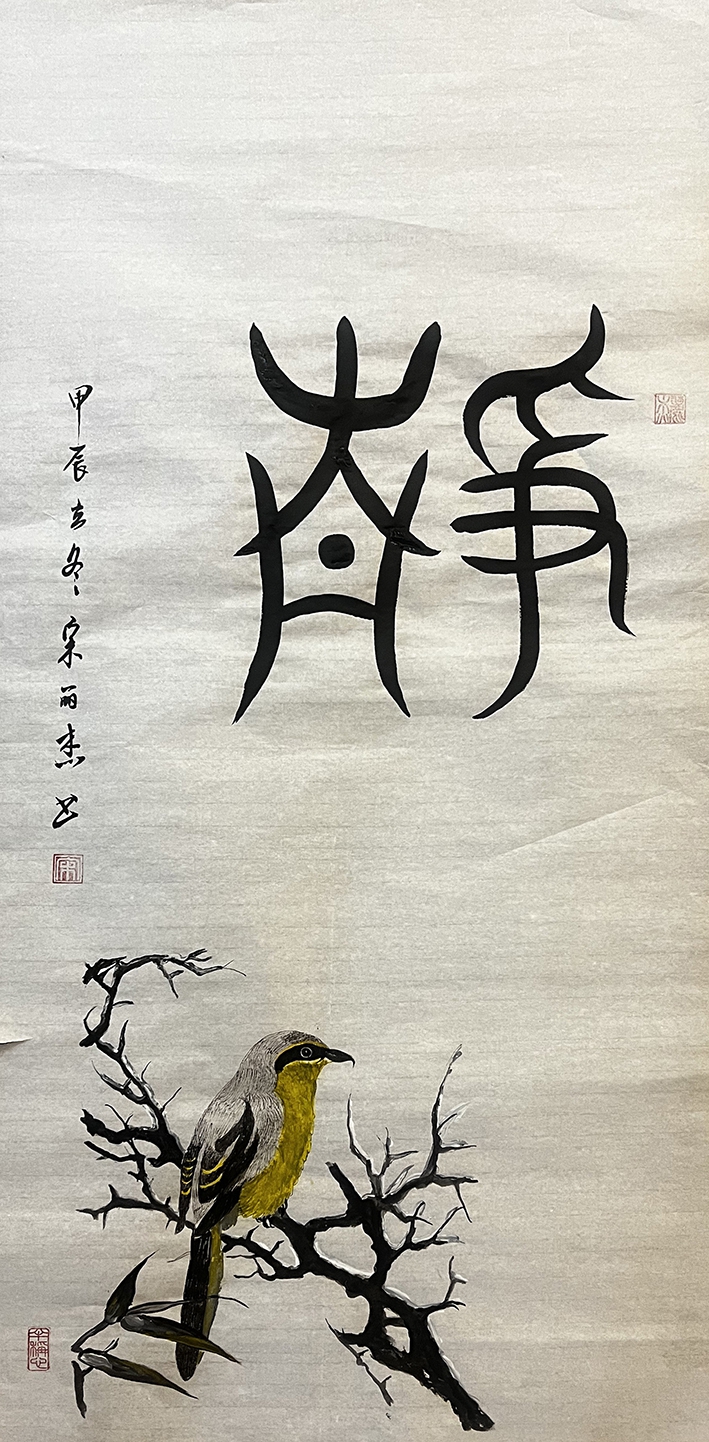 靜
甲辰立冬宋丽杰书
宋